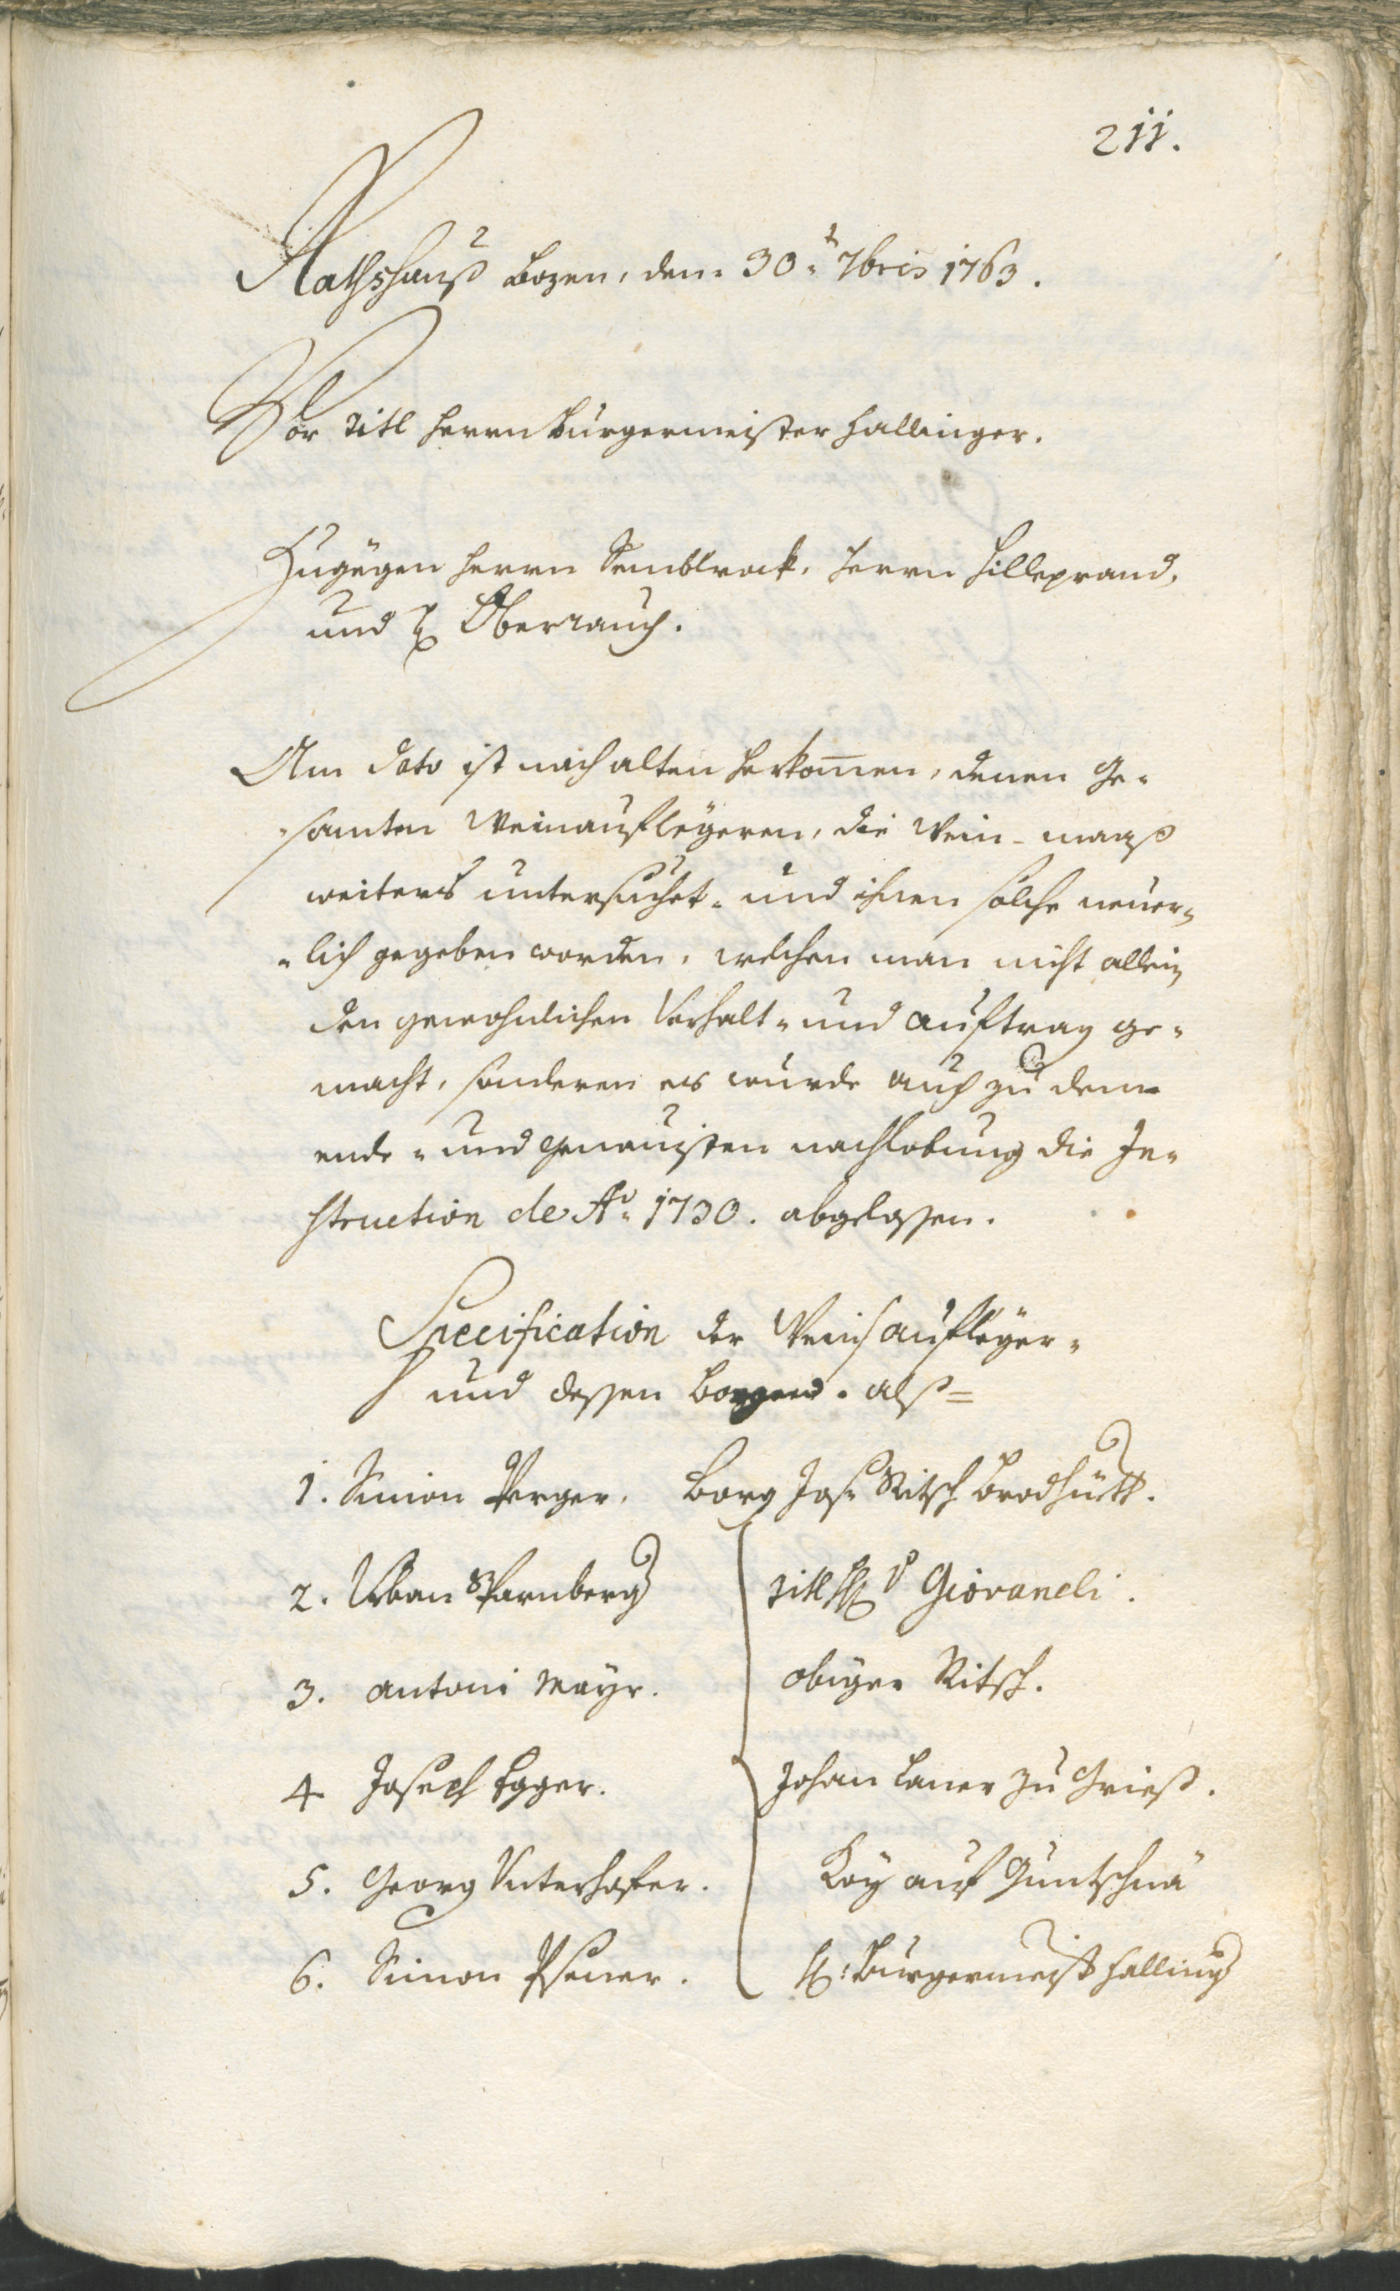 211.
Rathshauß Bozen, den 30t 7bris 1763.
Vor Titl Herrn Burgermeister Hallinger.
Zugegen Herrn Semblrock, Herrn Hilleprand,
und H Oberrauch.
Am dato ist nach alten herkom̄en, denen Ge-
samten Weinauflegeren, die Wein-maaß
weiters untersuchet- und ihnen solche neuer-
-lich gegeben worden, welchen man nicht allein
den gewohnlichen Verhalt- und auftrag ge-
macht, sonderen es wurde auch zu dem
ende- und genauisten nachlebung die In-
struction de Ao 1730. abgelesen.
Specification der Weinsaufleger-
und dessen Borgen. alß=
1. Simon Perger. Borg Jos. Ritsch Brodhuett.
2. Urban Starnberg Titl H v Giovaneli.
3. Antoni Mayr. obiger Ritsch.
4 Joseph Egger. Johan Laner zu Grieß.
5. Georg Unterhofer. Loy auf Guntschna
6. Simon Psener. H: Burgermeist Halling